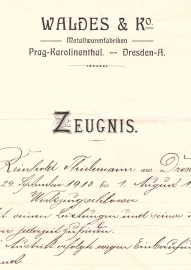 WALDES & Ko.
Metallwarenfabriken
Prag-Karolinenthal. — Dresden-A.
ZEUGNIS.
Reinhold Thielemann aus Dres
29. September 1913 bis 1. August 1
Werkzeugschlosser
mit seinen Leistungen und seiner
jederzeit zufrieden.
Austritt erfolgte wegen Einberufun